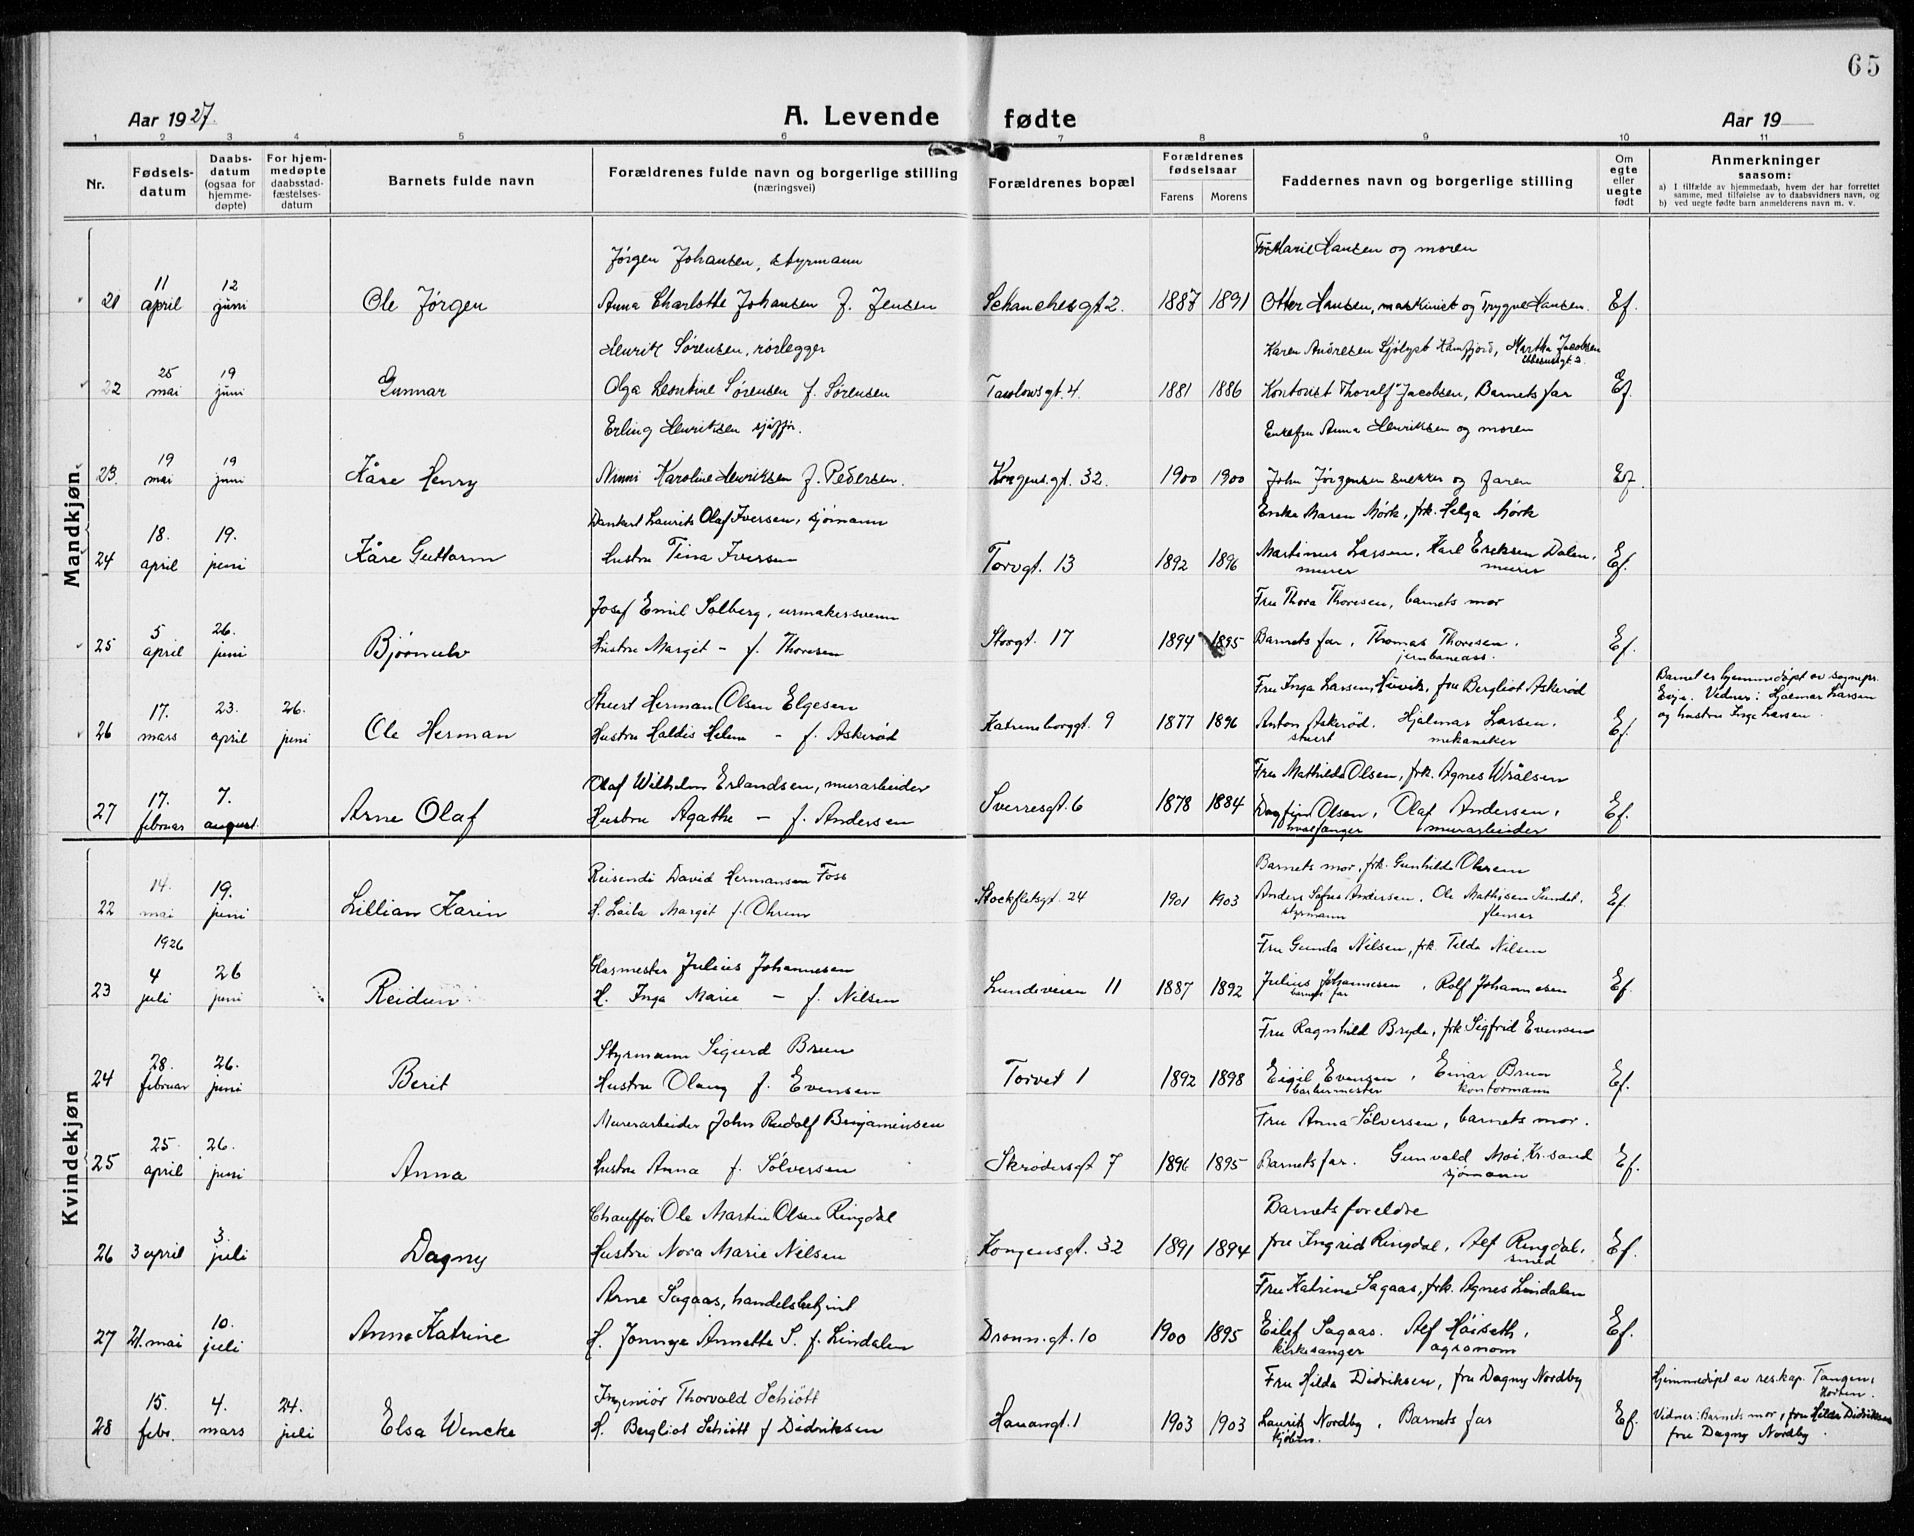 65
Aar 1927. A. Levende fødte Aar 19
1 2 3 4 5 6 7 8 9 10 11
Nr. Fødsels-datum Daabs-datum (ogsaa for hjemme-døpte) For hjem-medøpte daabsstad-fæstelses-datum Barnets fulde navn Forældrenes fulde navn og borgerlige stilling (næringsvei) Forældrenes bopæl Forældrenes fødselsaar Farens Morens Faddernes navn og borgerlige stilling Om egte eller uegte født Anmerkninger saasom: a) I tilfælde av hjemmedaab, hvem der har forrettet samme, med tilføielse av to daabsvidners navn, og b) ved uegte fødte barn anmelderens navn m. v.
Mandkjøn.
Jørgen Johansen, styrmann Marie Hansen og moren
21 11 april 12 juni Ole Jørgen Anna Charlotte Johansen f. Jensen Schanchesgt 2. 1887 1891 Otter Hansen, maskinist og Trygve Hansen. Ef.
Henrik Sørensen, rørlegger Karen Andresen Sjølyst Kamfjord, Martha Jacobsen
22 25 mai 19 juni Gunnar Olga Leontine Sørensen f. Sørensen 4. 1881 1886 Kontorist Thoralf Jacobsen, Barnets far Ef.
Erling Henriksen sjåffør. Enkefru Anna Henriksen og moren
23. 19 mai 19 juni Kåre Henry Ninni Karoline Henriksen f. Pedersen. Kongensgt. 32. 1900 1900 John Jørgensen snekker og faren Ef.
Dankert Laurits Olaf Iversen, sjømann Enke Maren Mørk, frk. Helga Mørk
24 18. april 19. juni Kåre Guttorm Hustru Tina Iversen Torvgt. 13 1892 1896 Martinus Larsen, murer Karl Eriksen Dalen, murer Ef.
Josef Emil Solberg, urmakersvenn Fru Thora Thoresen, barnets mor
25 5 april 26. juni Bjørnulv Hustru Margit - f. Thoresen Storgt. 17 1894 1895 Barnets far, Thomas Thoresen, jernbaneass. Ef.
Stuert Herman Olsen Elgesen Fru Inga Larsen, fru Bergliot Askerød
26 17. mars 23. april 26. juni Ole Herman Hustru Haldis Helene - f. Askerød Katrineborggt. 9 1877 1896 Anton Askerød. stuert Hjalmar Larsen. mekaniker Ef. Barnet er hjemmedøpt av sognepr. Evje. Vidner: Hjalmar Larsen og hustru Inga Larsen.
Olaf Wilhelm Erlandsen, murarbeider Fru Mathilde Olsen, frk. Agnes Wrålsen
27 17. februar 7. august. Arne Olaf Hustru Agathe - f. Andersen Sverresgt. 6 1878 1884 Dagfinn Olsen, hvalfanger Olaf Andersen, murarbeider Ef.
Kvindekjøn
Reisende David Hermansen Foss Barnets mor, frk. Gunhilda Ohrem
22 14. mai 19. juni Lillian Karin H. Laila Margit f. Ohrem Stockfletsgt. 24 1901 1903 Anders Sofus Andersen, styrmann Ole Mathisen Sundet, flenser Ef.
1926 Glasmester Julius Johannesen Fru Gunda Nilsen, frk. Tilda Nilsen
23 4 juli 26 juni Reidun H. Inga Marie - f. Nilsen Lundeveien 11 1887 1892 Julius Johannesen barnets far, Rolf Johannesen Ef.
Styrmann Sigurd Bruun Fru Ragnhild Bryde, frk Sigfrid Evensen
24 28. februar 26. juni Berit Hustru Olaug f. Evensen Torvet 1 1892 1898 Eigil Evensen, barbermester Einar Bruun kontormann Ef.
Murerarbeider John Rudolf Benjaminsen Fru Anna Sølversen, barnets mor.
25 25 april 26. juni Anna Hustru Anna f. Sølversen Skrødersgt 7 1896 1895 Barnets far. Gunvald Moi, Kr.sand sjømann Ef.
Chauffør Ole Martin Olsen Ringdal Barnets foreldre
26 3 april 3. juli Dagny Hustru Nora Marie Nilsen Kongensgt. 32 1891 1894 fru Ingrid Ringdal, Alf Ringdal, smed Ef.
Arne Sagaas, handelsbetjent Fru Katrine Sagaas, frk. Agnes Lindalen
27 21. mai 10. juli Anne Katrine H. Annette S. f. Lindalen Dronn.gt. 10 1900 1895 Eilef Sagaas. kirkesanger Alf Høiseth, agronom Ef.
Ingeniør Thorvald Schiøtt Fru Hilda Didriksen, fru Dagny Nordby
28 15. febr. 4. mars 24. juli Elsa Wencke H. Bergliot Schiøtt f Didriksen Hauangt. 1 1903 1903 Laurits Nordby, kjøbm. Barnets far Ef. Hjemmedøpt av res.kap. Tangen, Horten. Vidner: Barnets mor, fru Hilda Didriksen fru Dagny Nordby.